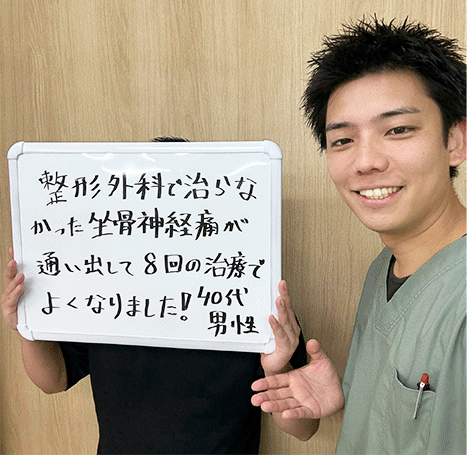 整形外科で治らな
かった坐骨神経痛が
通い出して8回の治療で
よくなりました! 40代
男性